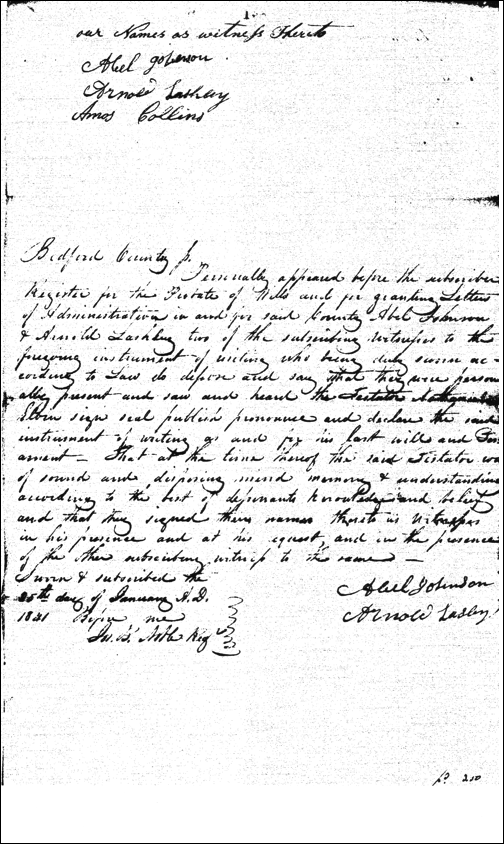 our Names as witness Thereto
Abel Johnson
Arnold Lashley
Amos Collins
Bedford County ss.
Personally appeared before the subscriber
Register for the Probate of Wills and for granting Letters
of Administration in and for said County Abel Johnson
& Arnold Lashley two of the subscribing witnesses to the
foregoing instrument of writing who being duly sworn ac-
cording to Law do depose and say that they were person
ally present and saw and heard the Testator
sign seal publish pronounce and declare the said
instrument of writing as and for his last will and Tes
ament - That at the time thereof the said Testator was
of sound and disposing mind memory & understanding
according to the best of deponants knowledge and belief
and that they signed their names thereto as witnesses
in his presence and at his request, and in the presence
of the other subscribing witness to the same -
Sworn & subscribed the
25th day of January A.D.
1841 Before me
Jn. B. Noble Reg
Abel Johnson
Arnold Lasley
p. 210